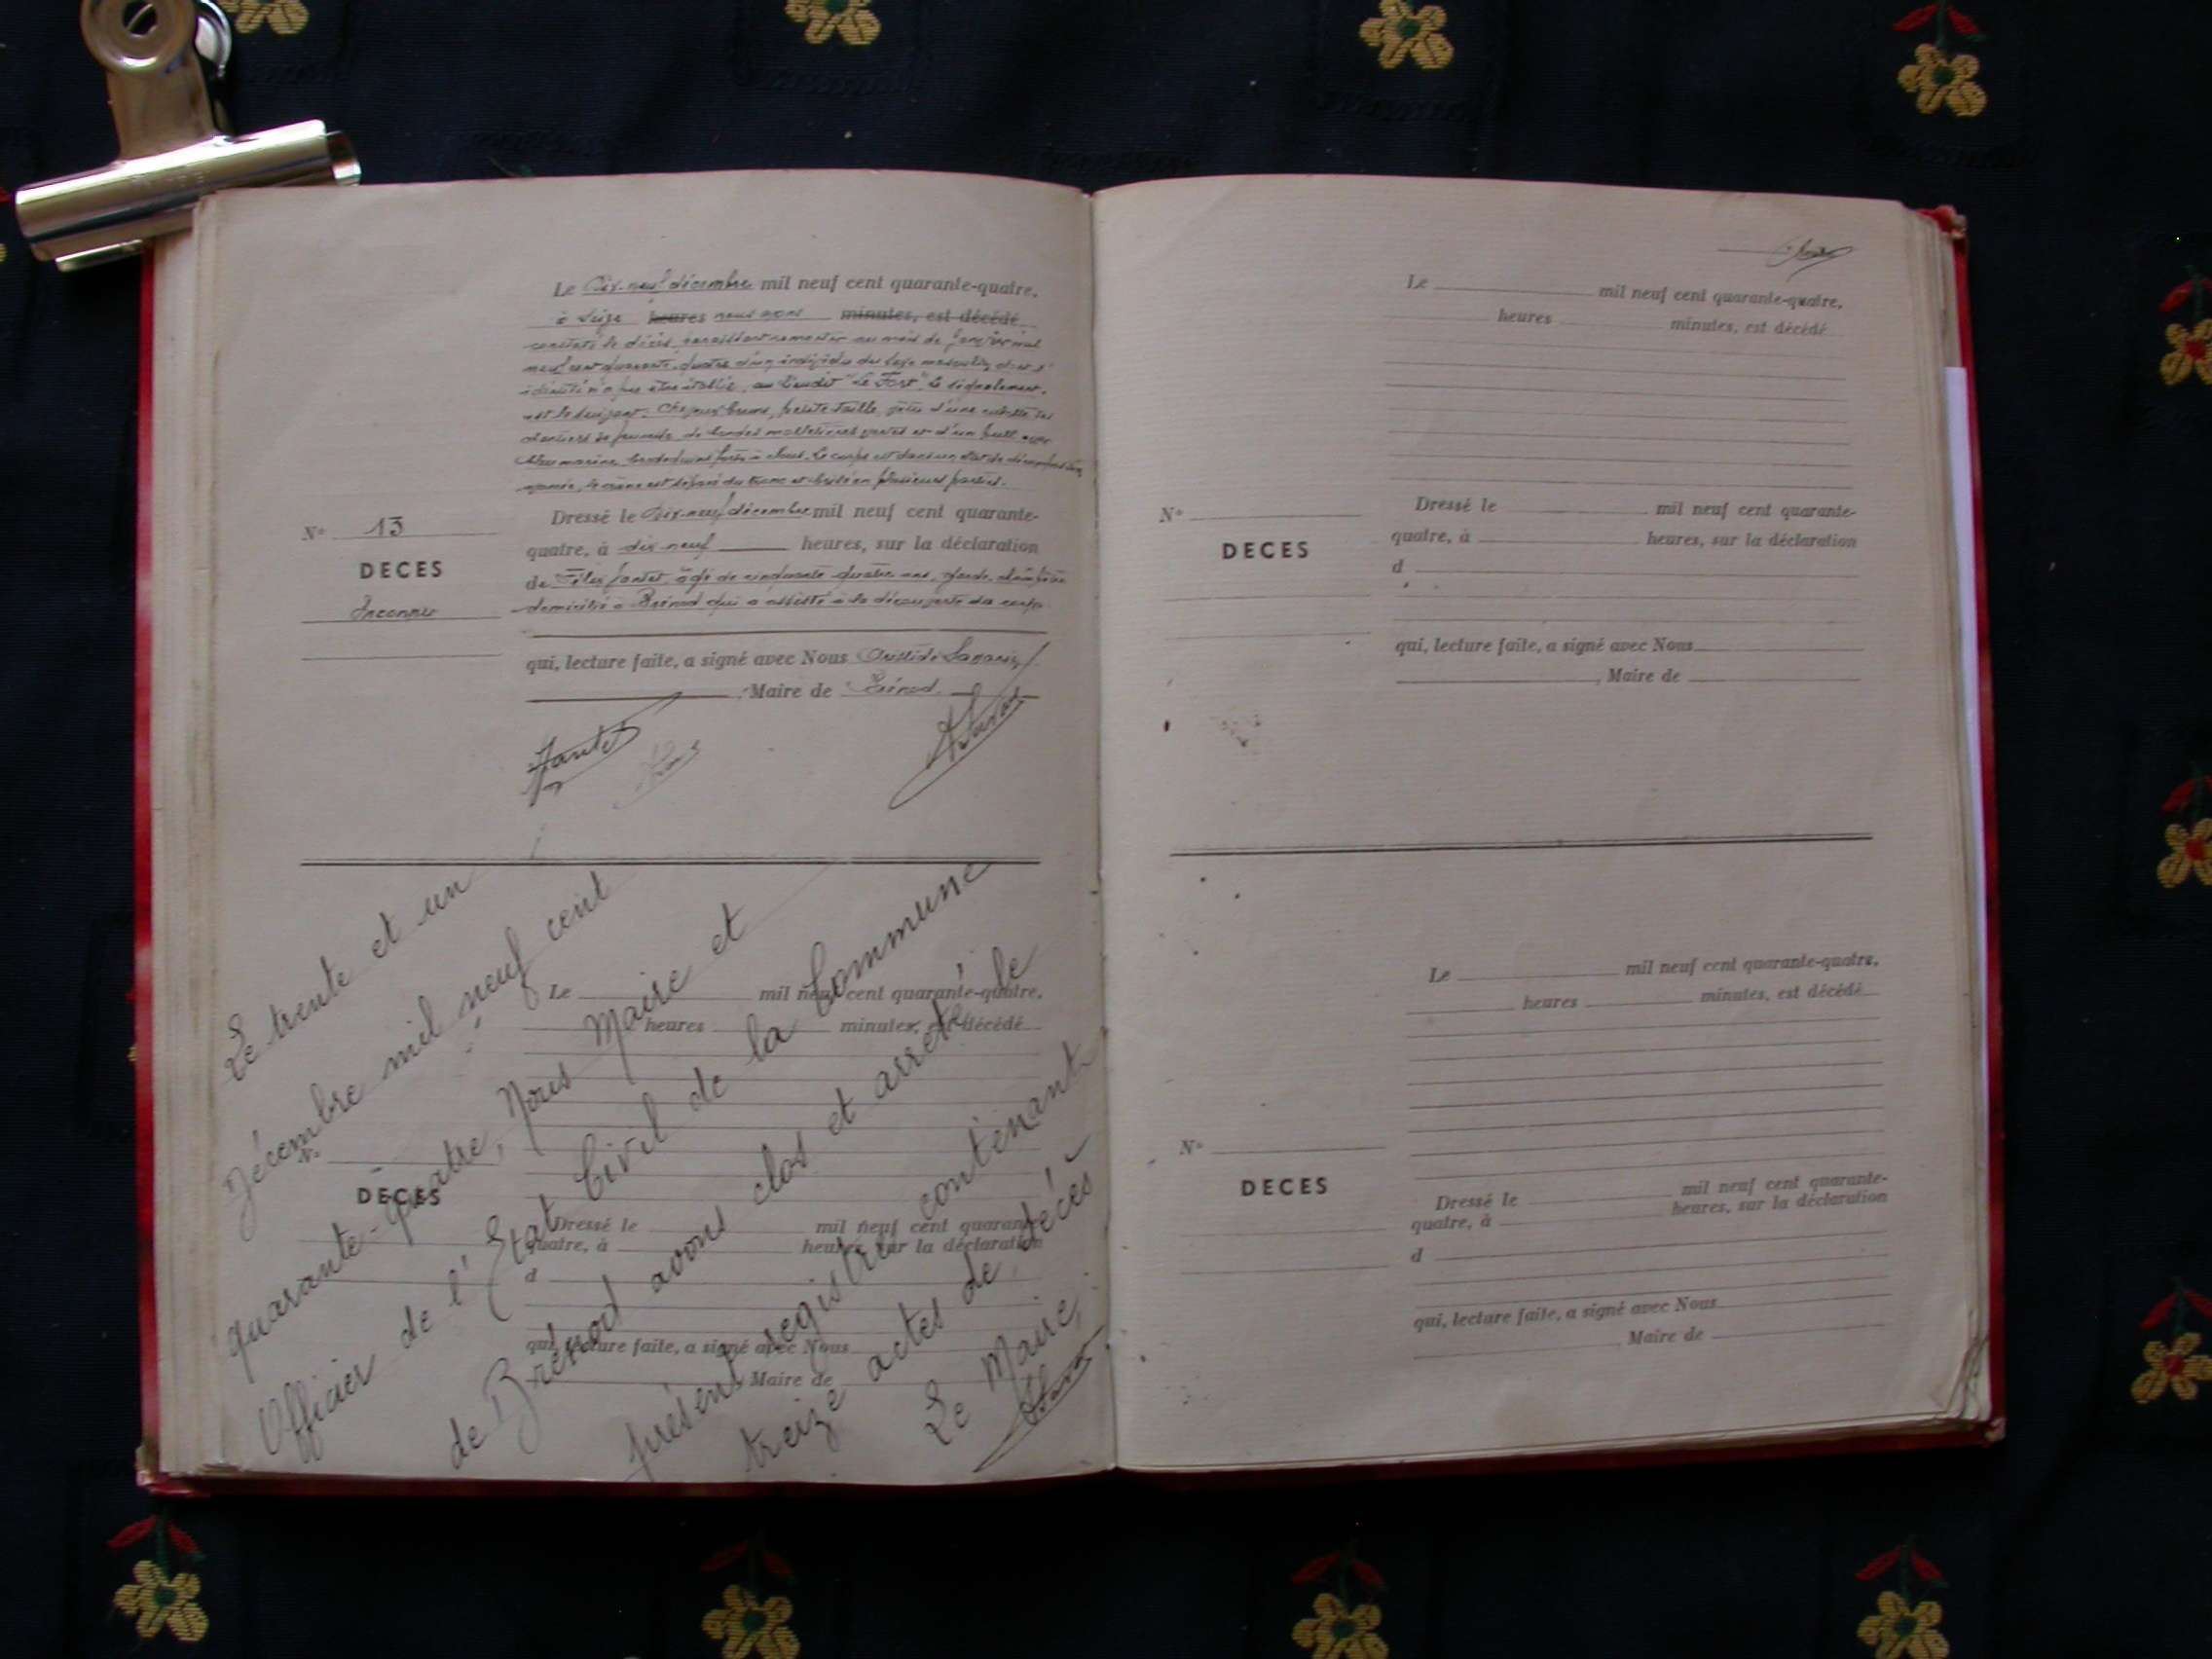 Le Dix-neuf décembre mil neuf cent quarante-quatre,
à seize heures nous avons minutes, est décédé
constaté le décès paraissant remonter au mois de mil
neuf cent quarante-quatre d'un individu du sexe masculin dont l'
identité n'a pu être établie, au lieudit "Le Fort". Le signalement
est le suivant. Cheveux bruns, petite taille, vêtu d'une culotte des
chantiers de jeunesse, de bandes molletières vertes et d'un pull over
bleu marine, brodequins à clous. Le corps est dans un état de décomposition
, le crâne est séparé du tronc et brisé en plusieurs parties.
N° 13
DECES
Inconnu
Dressé le Dix-neuf décembre mil neuf cent quarante-
quatre, à dix-neuf heures, sur la déclaration
de Félix Jantet, âgé de cinquante quatre ans, garde-champêtre
domicilié à Brénod qui a assisté à la découverte du corps
qui, lecture faite, a signé avec Nous Aristide Savarin
, Maire de Brénod
Jantet
Le trente et un
Décembre mil neuf cent
quarante-quatre, Nous Maire et
Officier de l'Etat Civil de la Commune
de Brénod avons clos et arrêté le
présent registre contenant
treize actes de décès
Le Maire,
Le mil neuf cent quarante-quatre,
heures minutes, est décédé
N°
DECES
Dressé le mil neuf cent quarante-
quatre, à heures, sur la déclaration
d
qui, lecture faite, a signé avec Nous
Maire de
Le mil neuf cent quarante-quatre,
heures minutes, est décédé
N°
DECES
Dressé le mil neuf cent quarante-
quatre, à heures, sur la déclaration
d
qui, lecture faite, a signé avec Nous
, Maire de
Le mil neuf cent quarante-quatre,
heures minutes, est décédé
N°
DECES
Dressé le mil neuf cent quarante-
quatre, à heures, sur la déclaration
d
qui, lecture faite, a signé avec Nous
, Maire de